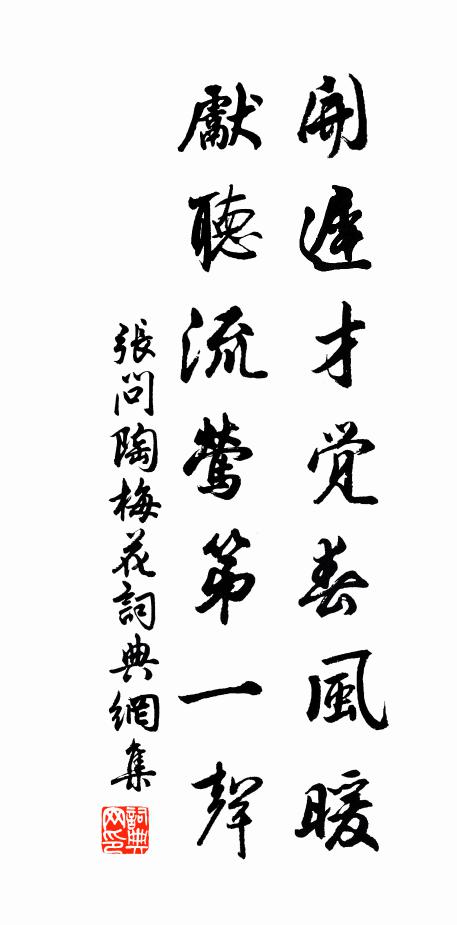 開遲才覺春風暖
獻聽流鶯第一聲
張問陶梅花詞典網集
詞典网印